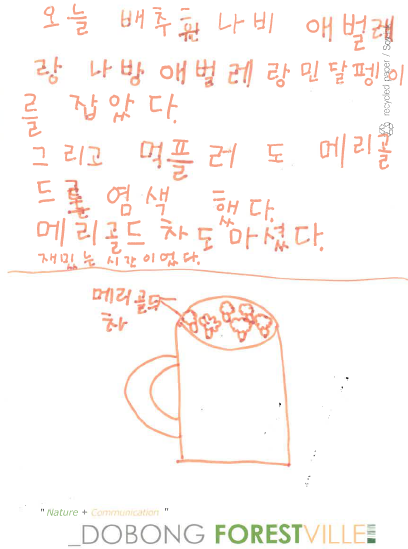 오늘 배추흰나비 애벌레
랑 나방애벌레랑 민달팽이
를 잡았다.
그리고 먹플러도 메리골
드를 염색 했다.
메리골드차도 마셨다.
재밌는 시간이었다.
메리골드
차
recycled paper / So
"Nature + Communication "
_DOBONG FORESTVILLE